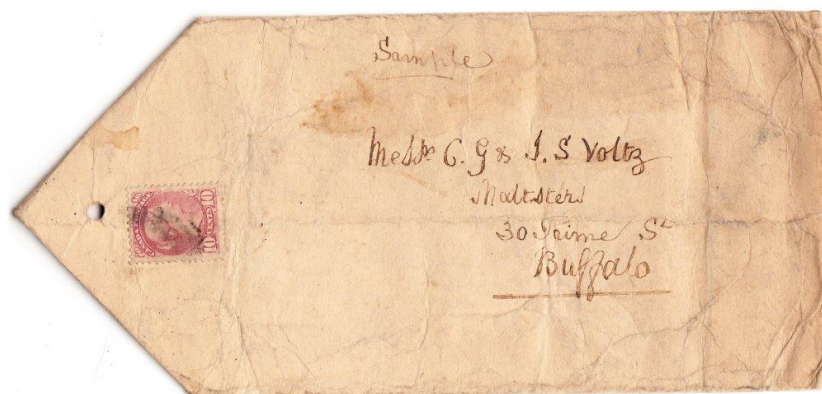 Sample
Messrs C. G & J. S Voltz
Maltsters
30 Prime St
Buffalo
10 10